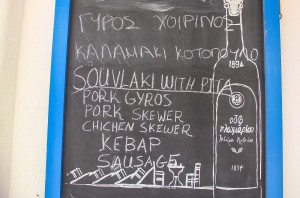 ΓΥΡΟΣ ΧΟΙΡΙΝΟΣ
ΚΑΛΑΜΑΚΙ ΚΟΤΟΠΟΥΛΟ
SOUVLAKI WITH PITA
PORK GYROS
PORK SKEWER
CHICHEN SKEWER
KEBAP
SAUSAGE
1894
ούζο
πλωμαρίου
1894